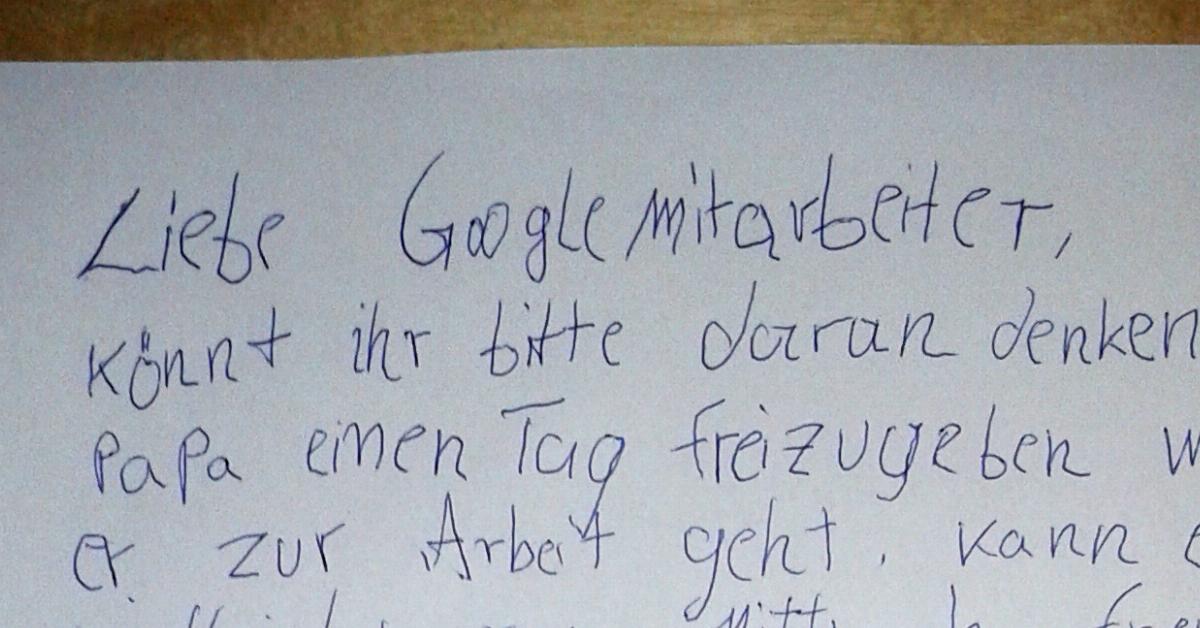 Liebe Googlemitarbeiter,
könnt ihr bitte daran denken
Papa einen Tag freizugeben
er zur Arbeit geht. Kann